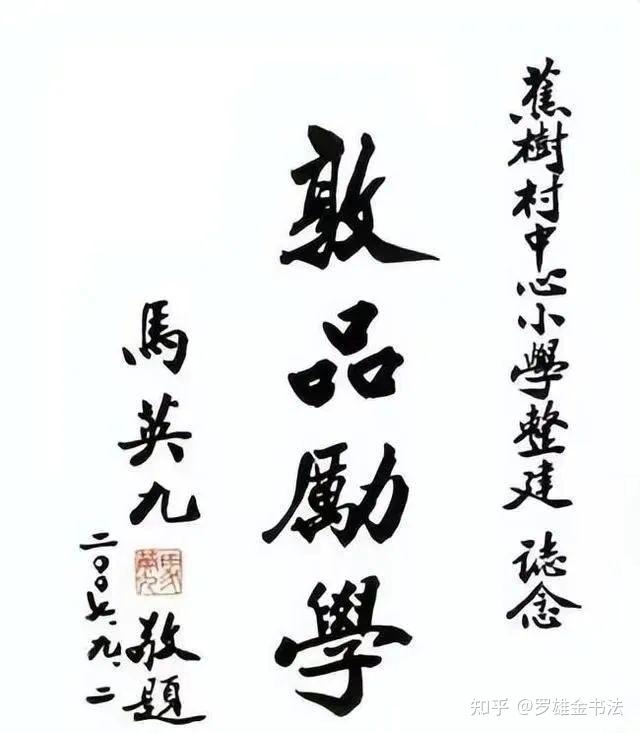 蕉樹村中心小學整建 誌念
敦品勵學
馬英九 敬題
二〇〇七.九.二
馬英九
知乎 @罗雄金书法